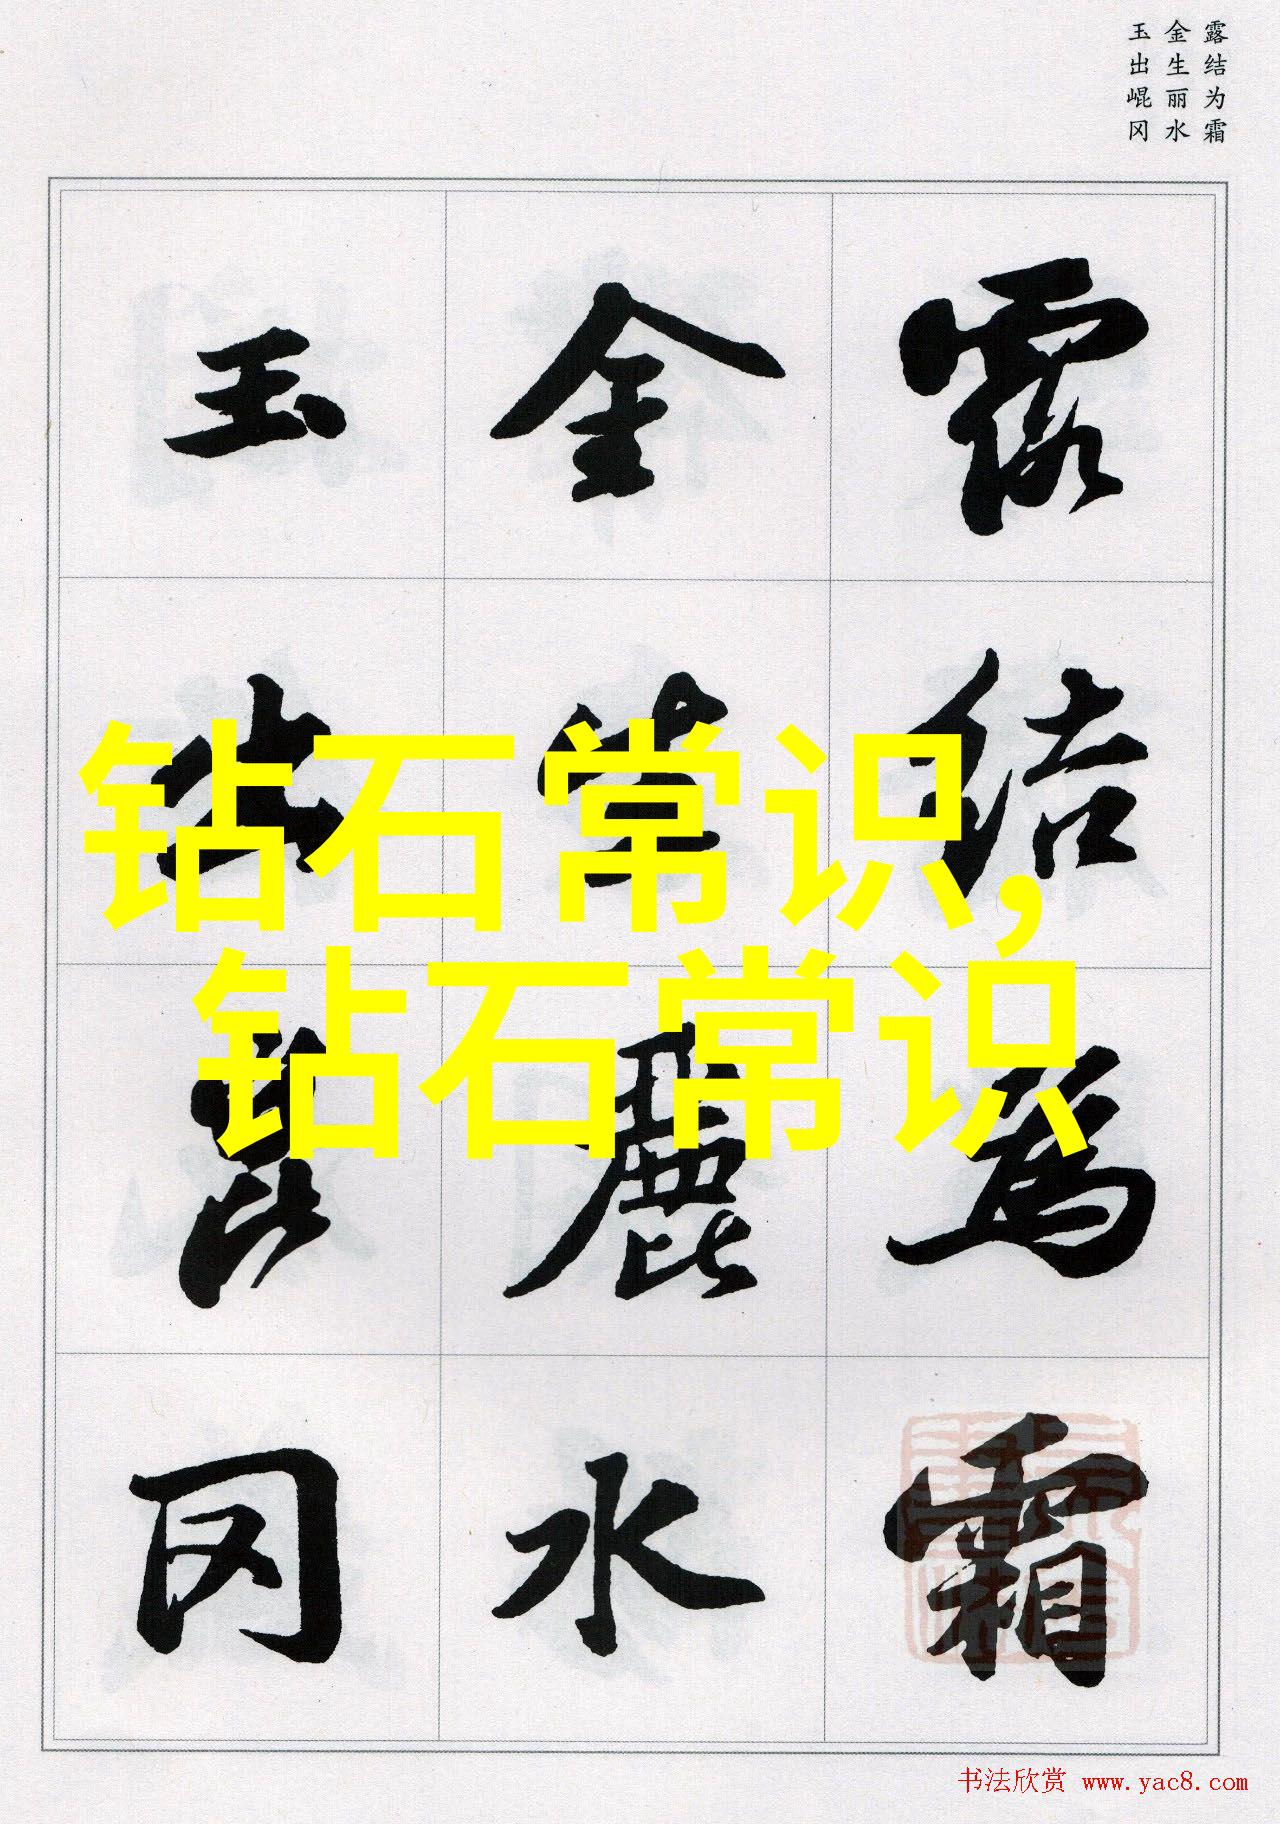 露结为霜
金生丽水
玉出崐冈
露結爲霜
金生麗水
玉出崑冈
钻石常识,
钻石常识
书法欣赏 www.yac8.com